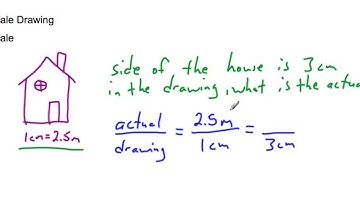 ale Drawing
ale
side of the house is 3cm
in the drawing, what is the actua
1cm = 2.5m
actual / drawing = 2.5m / 1cm = / 3cm